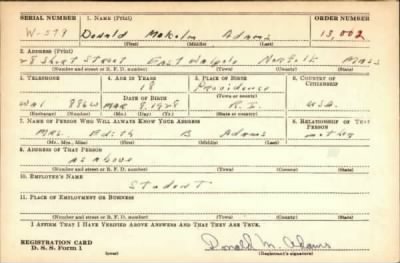 SERIAL NUMBER 1. NAME (Print) ORDER NUMBER
W-579 Donald Malcolm Adams 13,002
(First) (Middle) (Last)
2. ADDRESS (Print)
28 Short Street East Walpole Norfolk Mass
(Number and street or R. F. D. number) (Town) (County) (State)
3. TELEPHONE 4. AGE IN YEARS 5. PLACE OF BIRTH 6. COUNTRY OF CITIZENSHIP
18 Providence
DATE OF BIRTH (Town or county)
Wal 886W Mar 8, 1928 R. I. USA.
(Exchange) (Number) (Mo.) (Day) (Yr.) (State or country)
7. NAME OF PERSON WHO WILL ALWAYS KNOW YOUR ADDRESS 8. RELATIONSHIP OF THAT PERSON
Mrs. Edith B Adams mother
(Mr., Mrs., Miss) (First) (Middle) (Last)
9. ADDRESS OF THAT PERSON
as above
(Number and street or R. F. D. number) (Town) (County) (State)
10. EMPLOYER'S NAME
Student
11. PLACE OF EMPLOYMENT OR BUSINESS
(Number and street or R. F. D. number) (Town) (County) (State)
I AFFIRM THAT I HAVE VERIFIED ABOVE ANSWERS AND THAT THEY ARE TRUE.
REGISTRATION CARD
D. S. S. Form 1 (over) Donald M. Adams
(Registrant's signature)